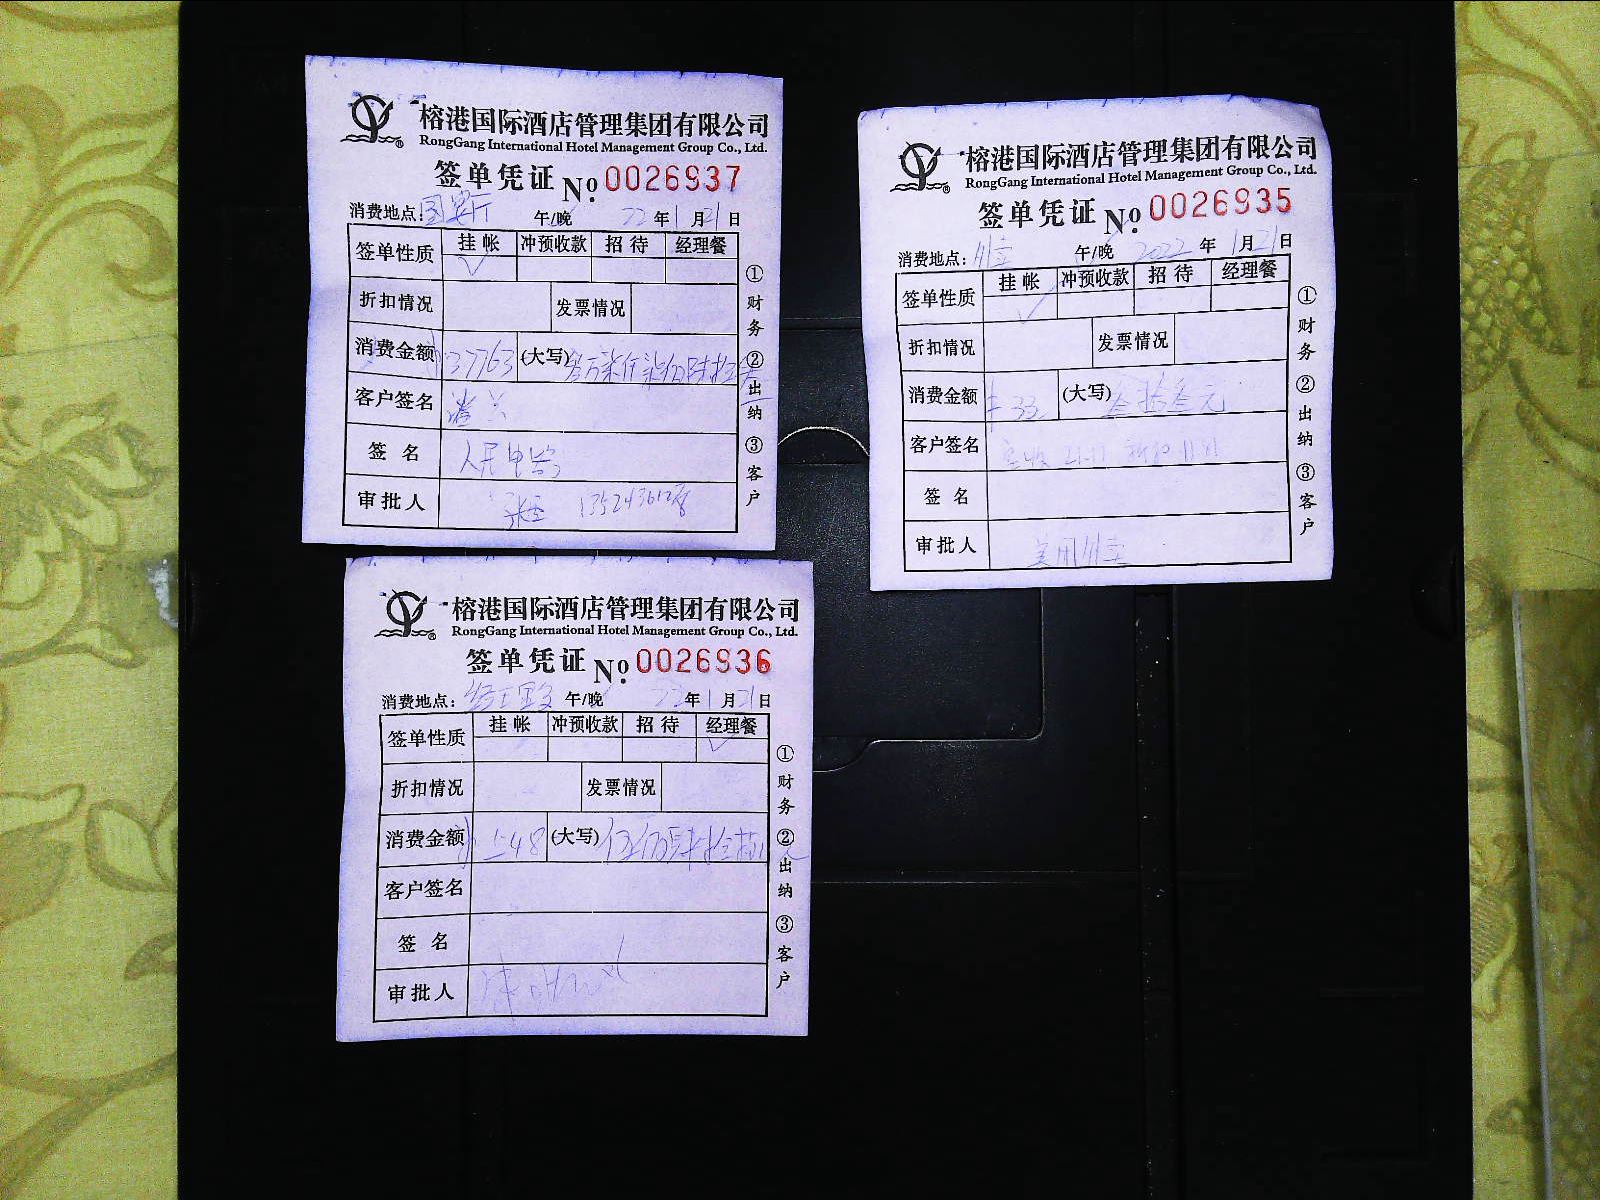 榕港国际酒店管理集团有限公司
RongGang International Hotel Management Group Co., Ltd.
签单凭证 No. 0026937
消费地点: 午/晚 22年1月21日
签单性质 挂帐 冲预收款 招待 经理餐
✓
折扣情况 发票情况
消费金额 37763 (大写) 叁万柒仟柒佰陆拾
客户签名
签名 人民电器
审批人
①财务 ②出纳 ③客户
榕港国际酒店管理集团有限公司
RongGang International Hotel Management Group Co., Ltd.
签单凭证 No. 0026935
消费地点: 外卖 午/晚 2022年1月21日
签单性质 挂帐 冲预收款 招待 经理餐
✓
折扣情况 发票情况
消费金额 33 (大写) 叁拾叁元
客户签名
签名
审批人 美团外卖
①财务 ②出纳 ③客户
榕港国际酒店管理集团有限公司
RongGang International Hotel Management Group Co., Ltd.
签单凭证 No. 0026936
消费地点: 午/晚 22年1月21日
签单性质 挂帐 冲预收款 招待 经理餐
✓
折扣情况 发票情况
消费金额 548 (大写)
客户签名
签名
审批人
①财务 ②出纳 ③客户